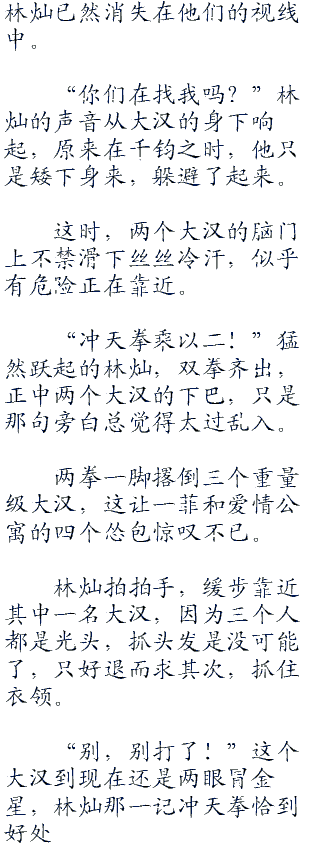 林灿已然消失在他们的视线
中。
“你们在找我吗？”林
灿的声音从大汉的身下响
起，原来在千钧之时，他只
是矮下身来，躲避了起来。
这时，两个大汉的脑门
上不禁滑下丝丝冷汗，似乎
有危险正在靠近。
“冲天拳乘以二！”猛
然跃起的林灿，双拳齐出，
正中两个大汉的下巴，只是
那句旁白总觉得太过乱入。
两拳一脚撂倒三个重量
级大汉，这让一菲和爱情公
寓的四个怂包惊叹不已。
林灿拍拍手，缓步靠近
其中一名大汉，因为三个人
都是光头，抓头发是没可能
了，只好退而求其次，抓住
衣领。
“别，别打了！”这个
大汉到现在还是两眼冒金
星，林灿那一记冲天拳恰到
好处